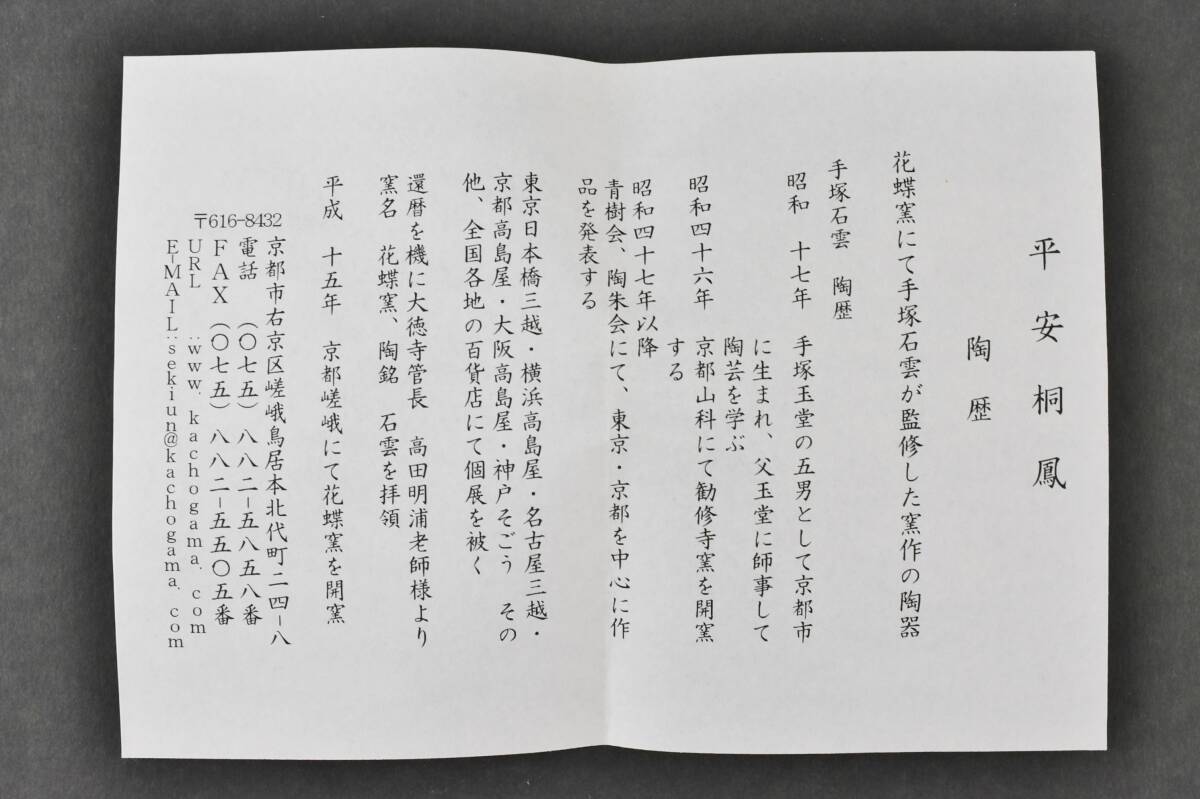 平安桐鳳
陶歴
花蝶窯にて手塚石雲が監修した窯作の陶器
手塚石雲　陶歴
昭和　十七年　手塚玉堂の五男として京都市
に生まれ、父玉堂に師事して
陶芸を学ぶ
昭和四十六年　京都山科にて勧修寺窯を開窯
する
昭和四十七年以降
青樹会、陶朱会にて、東京・京都を中心に作
品を発表する
東京日本橋三越・横浜高島屋・名古屋三越・
京都高島屋・大阪高島屋・神戸そごう　その
他、全国各地の百貨店にて個展を被く
還暦を機に大徳寺管長　高田明浦老師様より
窯名　花蝶窯、陶銘　石雲を拝領
平成　十五年　京都嵯峨にて花蝶窯を開窯
〒616-8432
京都市右京区嵯峨鳥居本北代町二四-八
電話　（〇七五）八八二-五八五八番
ＦＡＸ（〇七五）八八二-五五〇五番
URL　:www.kachogama.com
E-MAIL:sekiun@kachogama.com